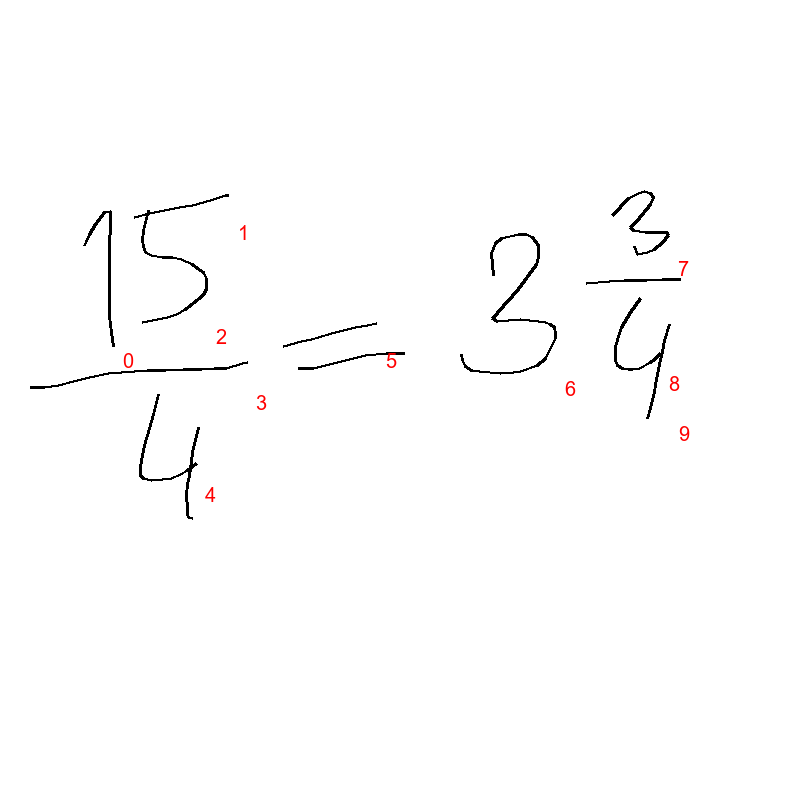 15/4 = 3 3/4
0 1 2 3 4 5 6 7 8 9